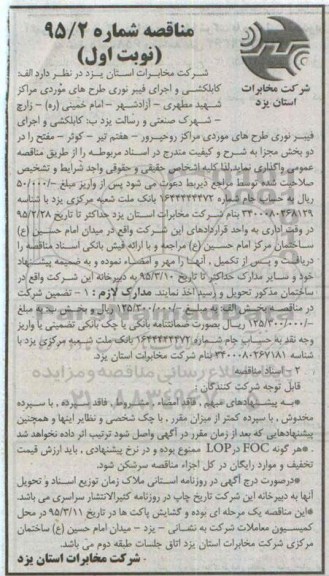 مناقصه شماره ۹۵/۲
(نوبت اول)
شرکت مخابرات
استان یزد
شرکت مخابرات استان یزد در نظر دارد الف:
کابلکشی و اجرای فیبر نوری طرح های موردی مراکز
شهید مطهری - آزادشهر - امام خمینی (ره) - زارچ
- شهرک صنعتی و رسالت یزد ب: کابلکشی و اجرای
فیبر نوری طرح های موردی مراکز روحیرور - هفتم تیر - کوثر - مفتح را در
دو بخش مجزا به شرح و کیفیت مندرج در اسناد مربوطه را از طریق مناقصه
عمومی واگذاری نماید. لذا کلیه اشخاص حقیقی و حقوقی واجد شرایط و تشخیص
صلاحیت شده توسط مراجع ذیربط دعوت می شود پس از واریز مبلغ ۵۰۰/۰۰۰/-
ریال به حساب جام شماره ۱۶۴۴۴۴۴۷۲ بانک ملت شعبه مرکزی یزد با شناسه
بنام شرکت مخابرات استان یزد حداکثر تا تاریخ ۹۵/۲/۲۸
در وقت اداری به واحد قراردادهای این شرکت واقع در میدان امام حسین (ع)
ساختمان مرکز امام حسین (ع) مراجعه و با ارائه فیش بانکی اسناد مناقصه را
دریافت و پس از تکمیل ، آنها را مهر و امضاء نموده و به ضمیمه پیشنهاد
خود و سایر مدارک حداکثر تا تاریخ ۹۵/۳/۱۰ به دبیرخانه این شرکت واقع در
ساختمان مذکور تحویل و رسید اخذ نمایند. مدارک لازم : ۱ - تضمین شرکت
در مناقصه ی بخش الف: به مبلغ ریال و بخش ب: به مبلغ
۱۲۵/۳۰۰/۰۰۰/- ریال بصورت ضمانتنامه بانکی یا چک بانکی تضمینی یا واریز
وجه نقد به حساب جام شماره ۱۶۴۴۴۴۴۷۲ بانک ملت شعبه مرکزی یزد با
شناسه بنام شرکت مخابرات استان یزد.
۲ - اسناد مناقصه
قابل توجه شرکت کنندگان :
- به پیشنهادهای مبهم ، فاقد امضاء ، مشروط ، فاقد سپرده ، با سپرده
مخدوش ، با سپرده کمتر از میزان مقرر ، با چک شخصی و نظایر اینها و همچنین
پیشنهادهایی که بعد از زمان مقرر در آگهی واصل شود ترتیب اثر داده نخواهد شد
- هر گونه FOC در LOP ممنوع بوده و در نرخ پیشنهادی ، باید ارزش قیمت
تخفیف و موارد رایگان در کل اجزاء مناقصه سرشکن شود.
- درصورت درج آگهی در روزنامه استانی ملاک زمان توزیع اسناد و تحویل
آنها به دبیرخانه این شرکت تاریخ چاپ در روزنامه کثیرالانتشار سراسری می باشد.
- این مناقصه یک مرحله ای بوده و گشایش پاکت ها در تاریخ ۹۵/۳/۱۱ در محل
کمیسیون معاملات شرکت به نشانی - یزد - میدان امام حسین (ع) ساختمان
مرکزی شرکت مخابرات استان یزد اتاق جلسات طبقه دوم می باشد.
- شرکت مخابرات استان یزد